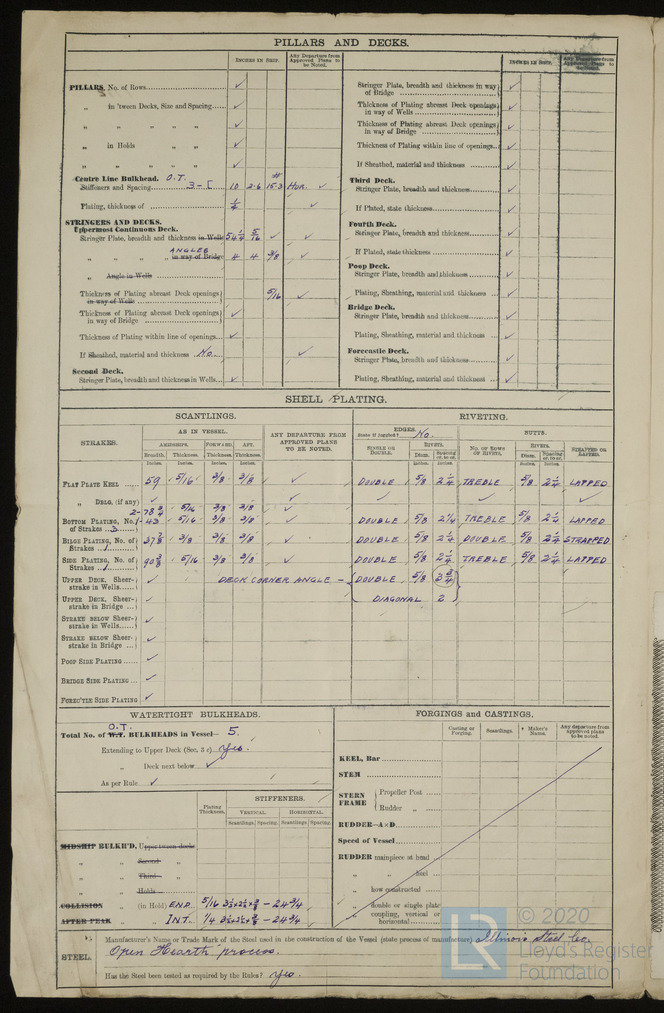 PILLARS AND DECKS.
INCHES IN SHIP.
Any Departure from Approved Plans to be Noted.
PILLARS, No. of Rows ✓
„ in 'tween Decks, Size and Spacing ✓
„ „ „ „ „ ✓
„ in Holds „ „ ✓
„ „ „ „ ✓
Centre Line Bulkhead. O.T.
Stiffeners and Spacing 3-[ 10 2·6 15·3# Hor. ✓
Plating, thickness of 1/4 ✓
STRINGERS AND DECKS.
Uppermost Continuous Deck.
Stringer Plate, breadth and thickness in Wells 54 1/4 5/16 ✓ ✓
„ „ „ ANGLES in way of Bridge 4 4 3/8 ✓
„ Angle in Wells
Thickness of Plating abreast Deck openings in way of Wells 5/16 ✓
Thickness of Plating abreast Deck openings in way of Bridge ✓
Thickness of Plating within line of openings ✓
If Sheathed, material and thickness No. ✓
Second Deck.
Stringer Plate, breadth and thickness in Wells ✓
INCHES IN SHIP.
Any Departure from Approved Plans to be Noted.
Stringer Plate, breadth and thickness in way of Bridge ✓
Thickness of Plating abreast Deck openings in way of Wells ✓
Thickness of Plating abreast Deck openings in way of Bridge ✓
Thickness of Plating within line of openings ✓
If Sheathed, material and thickness ✓
Third Deck.
Stringer Plate, breadth and thickness ✓
If Plated, state thickness ✓
Fourth Deck.
Stringer Plate, breadth and thickness ✓
If Plated, state thickness ✓
Poop Deck.
Stringer Plate, breadth and thickness ✓
Plating, Sheathing, material and thickness ✓
Bridge Deck.
Stringer Plate, breadth and thickness ✓
Plating, Sheathing, material and thickness ✓
Forecastle Deck.
Stringer Plate, breadth and thickness ✓
Plating, Sheathing, material and thickness ✓
SHELL PLATING.
SCANTLINGS. RIVETING.
STRAKES.
AS IN VESSEL.
AMIDSHIPS. FORWARD. AFT.
Breadth. Thickness. Thickness. Thickness.
Inches. Inches. Inches. Inches.
ANY DEPARTURE FROM APPROVED PLANS TO BE NOTED.
EDGES.
State if joggled? No.
SINGLE OR DOUBLE.
RIVETS.
Diam. Spacing cr. to cr.
Inches. Inches.
BUTTS.
NO. OF ROWS OF RIVETS.
RIVETS.
Diam. Spacing cr. to cr.
Inches. Inches.
STRAPPED OR LAPPED.
FLAT PLATE KEEL 59 5/16 3/8 3/8 ✓ DOUBLE 5/8 2 1/4 TREBLE 5/8 2 1/4 LAPPED
„ DBLG. (if any) ✓ ✓ ✓ ✓ ✓
2-78 3/4 5/16 3/8 3/8 ✓
BOTTOM PLATING, No. of Strakes 3 1-43 5/16 3/8 3/8 ✓ DOUBLE 5/8 2 1/4 TREBLE 5/8 2 1/4 LAPPED
BILGE PLATING, No. of Strakes 1 37 3/8 3/8 3/8 3/8 ✓ DOUBLE 5/8 2 1/4 DOUBLE 5/8 2 1/4 STRAPPED
SIDE PLATING, No. of Strakes 1 90 3/8 5/16 3/8 3/8 ✓ DOUBLE 5/8 2 1/4 TREBLE 5/8 2 1/4 LAPPED
UPPER DECK, Sheerstrake in Wells ✓ DECK CORNER ANGLE - DOUBLE 5/8 2 3/4
UPPER DECK, Sheerstrake in Bridge ✓ DIAGONAL 2
STRAKE BELOW Sheerstrake in Wells ✓
STRAKE BELOW Sheerstrake in Bridge ✓
POOP SIDE PLATING ✓
BRIDGE SIDE PLATING ✓
FOREC'TLE SIDE PLATING ✓
WATERTIGHT BULKHEADS.
O.T.
Total No. of W.T. BULKHEADS in Vessel— 5.
Extending to Upper Deck (Sec. 3 c) Yes.
„ Deck next below ✓
As per Rule ✓
Plating Thickness.
STIFFENERS.
VERTICAL. HORIZONTAL.
Scantlings. Spacing. Scantlings. Spacing.
MIDSHIP BULKH'D, Upper 'tween decks
„ „ Second „
„ „ Third „
„ „ Holds
COLLISION „ (in Hold) END. 5/16 3 1/2 x 2 1/2 x 3/8 - 24 3/4
AFTER PEAK „ INT. 1/4 3 1/2 x 2 1/2 x 3/8 - 24 3/4
FORGINGS and CASTINGS.
Casting or Forging. Scantlings. Maker's Name. Any departure from approved plans to be noted.
KEEL, Bar
STEM
STERN FRAME
Propeller Post
Rudder „
RUDDER—A×D
Speed of Vessel
RUDDER mainpiece at head
„ „ heel
„ how constructed
„ double or single plate
„ coupling, vertical or horizontal
STEEL.
Manufacturer's Name or Trade Mark of the Steel used in the construction of the Vessel (state process of manufacture) Illinois Steel Co.
Open Hearth process.
Has the Steel been tested as required by the Rules? Yes.
LR
© 2020
Lloyd's Register
Foundation